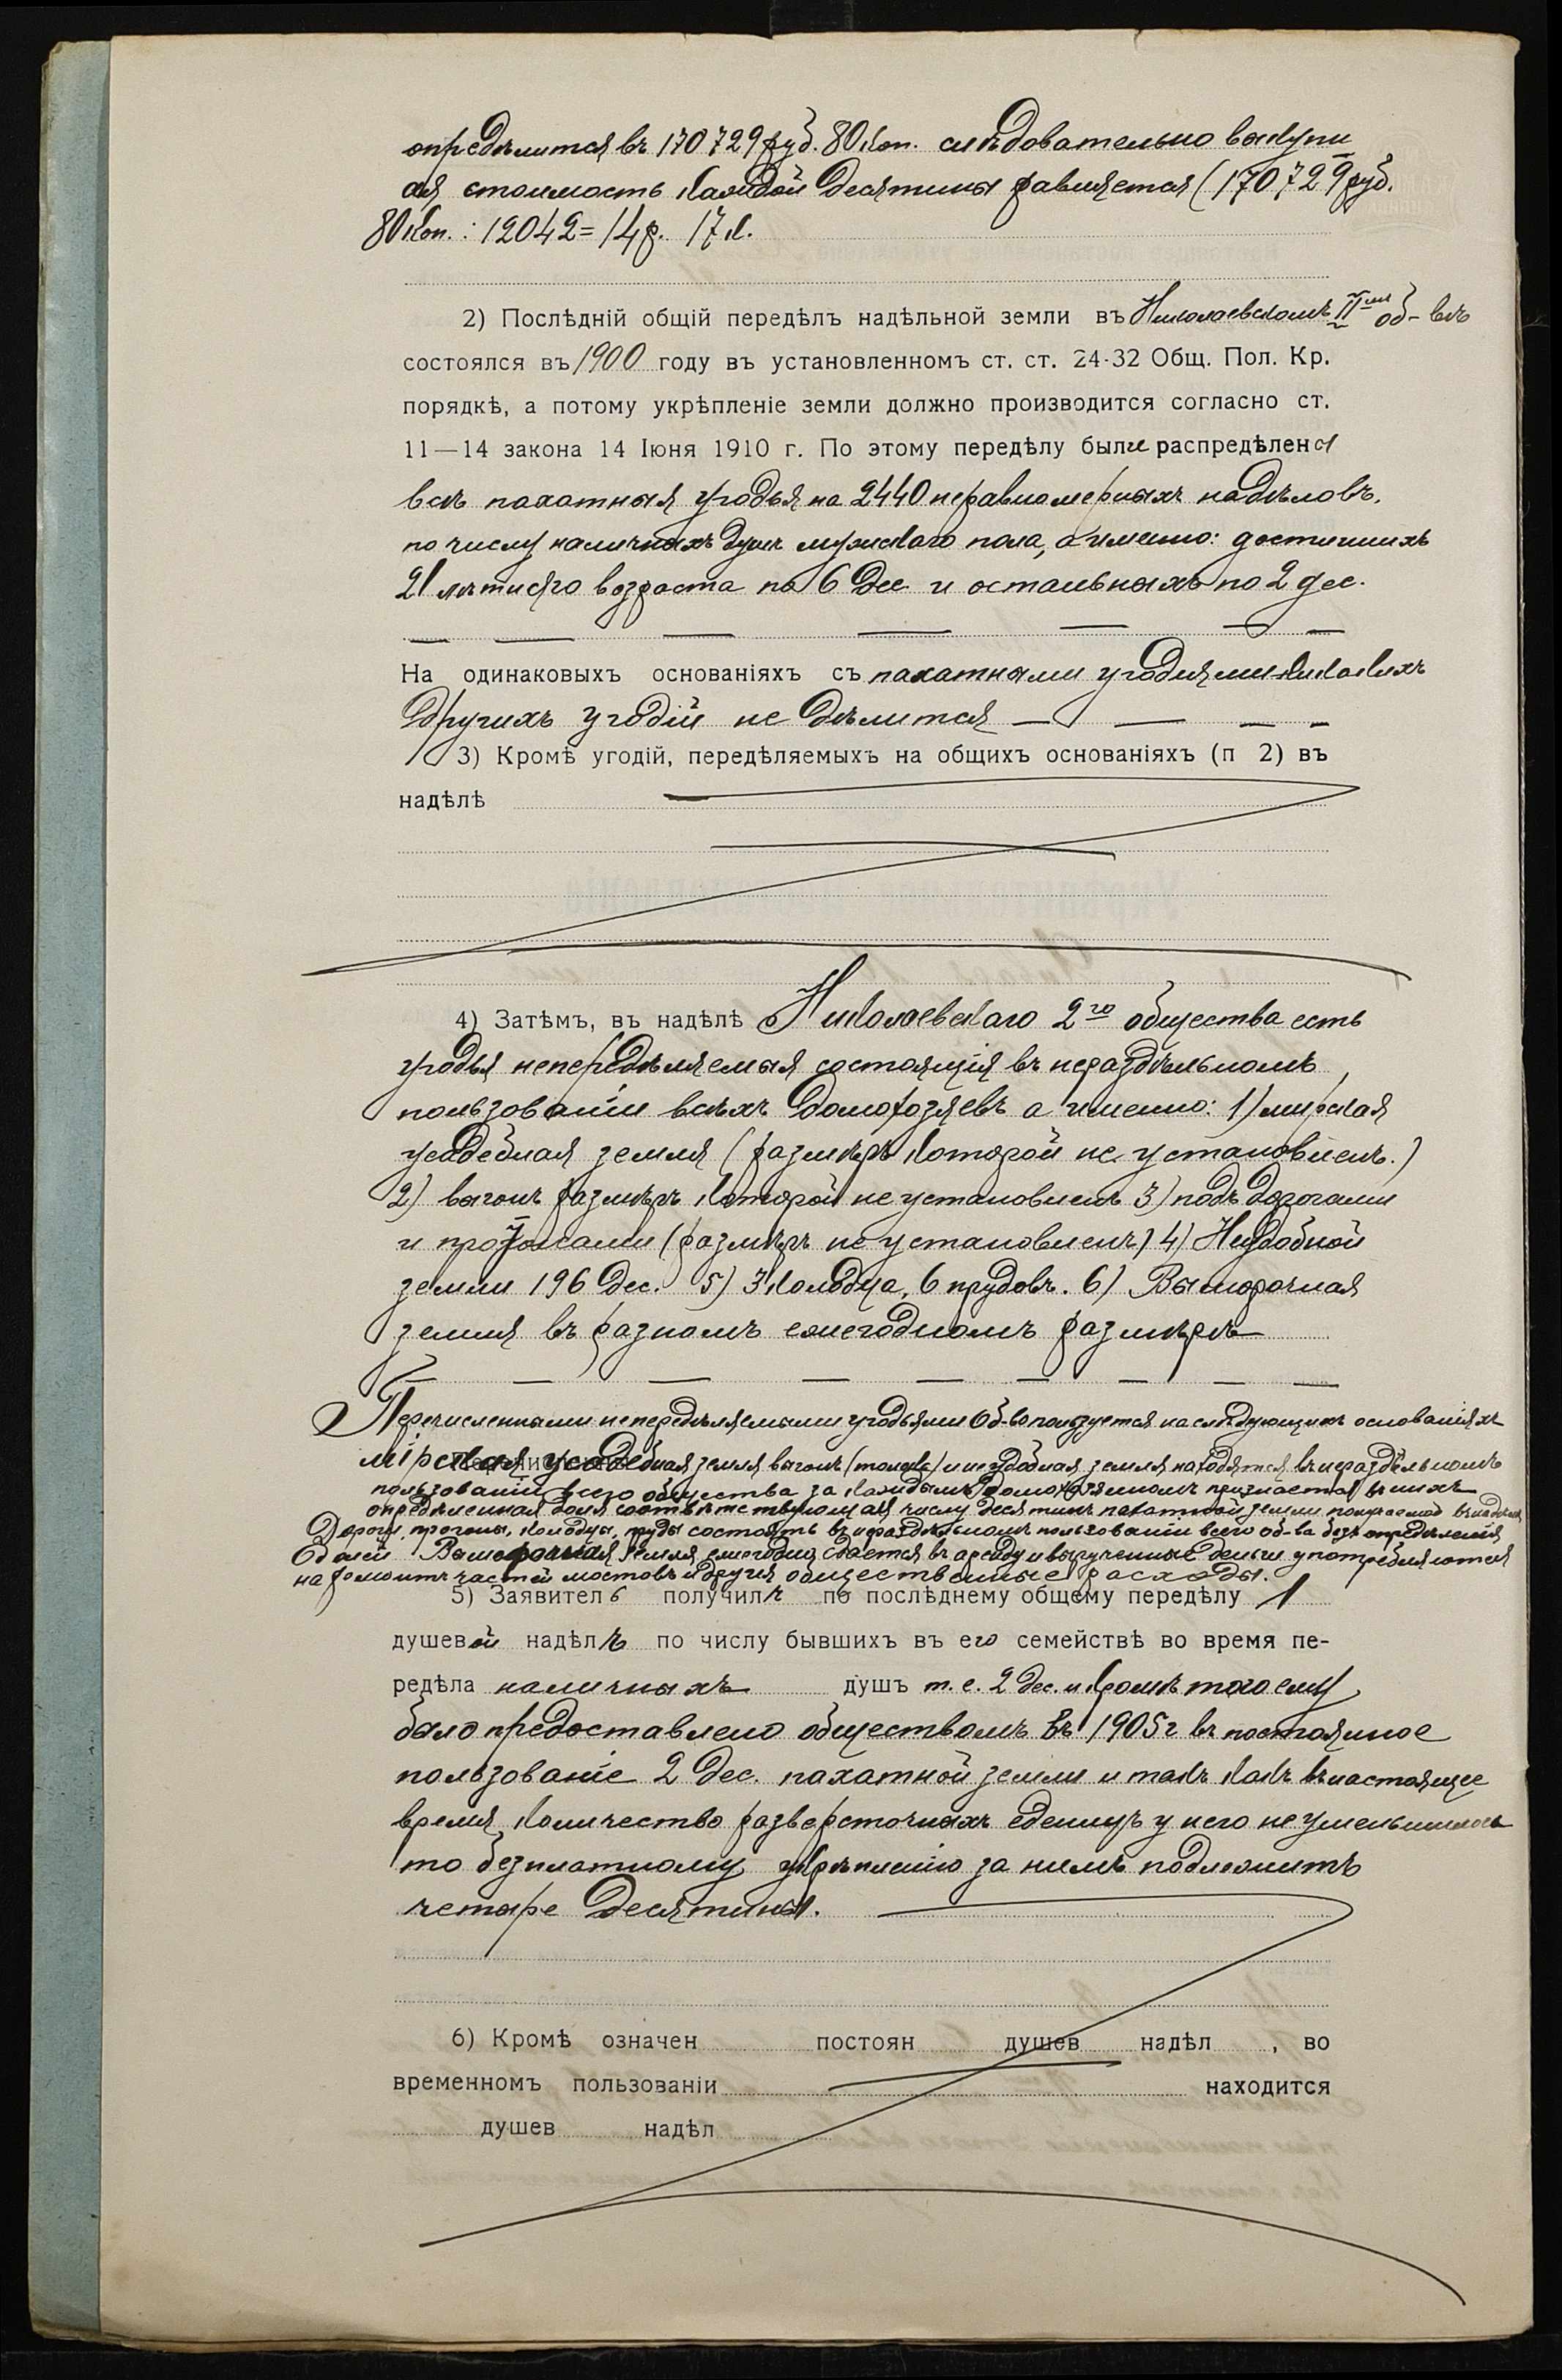 опредѣлится въ 170729 руб. 80 коп. слѣдовательно выкупн
ая стоимость каждой десятины равняется (170729 руб.
80 коп. : 12042 = 14 р. 17 к.
2) Послѣдній общій передѣлъ надѣльной земли въ Николаевскомъ II омъ об-вѣ
состоялся въ 1900 году въ установленномъ ст. ст. 24-32 Общ. Пол. Кр.
порядкѣ, а потому укрѣпленіе земли должно производится согласно ст.
11—14 закона 14 Іюня 1910 г. По этому передѣлу были распредѣлены
всѣ пахатныя угодья на 2440 неравномерныхъ надѣловъ,
по числу наличныхъ душъ мужского пола, а именно: достигшихъ
21 лѣтняго возраста по 6 дес. и остальныхъ по 2 дес.
На одинаковыхъ основаніяхъ съ пахатными угодиями никакихъ
другихъ угодій не дѣлится
3) Кромѣ угодій, передѣляемыхъ на общихъ основаніяхъ (п 2) въ
надѣлѣ
4) Затѣмъ, въ надѣлѣ Николаевскаго 2го общества есть
угодья непередѣляемыя состоящія въ нераздѣльномъ
пользованіи всѣхъ домохозяевъ а именно: 1) мирская
усадебная земля (размѣръ которой не установленъ.)
2) выгонъ размѣръ которой не установленъ 3) подъ дорогами
и прогонами (размѣръ не установленъ) 4) Неудобной
земли 196 дес. 5) 3 колодца, 6 прудовъ. 6) Выморочная
земля въ разномъ ежегодномъ размѣрѣ
Перечисленными непередѣляемыми угодьями Об-во пользуется на слѣдующихъ основаніяхъ
мірская усадебная земля выгонъ (толока) и неудобная земля находятся въ нераздѣльномъ
пользованіи всего общества за каждымъ домохозяиномъ признается въ нихъ
опредѣленная доля соотвѣтствующая числу десятинъ пахатной земли
Дороги, прогоны, колодцы, пруды состоятъ въ нераздѣльномъ пользованіи всего об-ва безъ опредѣленія
долей Выморочная земля ежегодно сдается въ аренду и вырученные деньги употребляются
на ремонтъ частей мостовъ и другія общественные расходы.
5) Заявитель получилъ по послѣднему общему передѣлу 1
душевой надѣлъ по числу бывшихъ въ его семействѣ во время пе-
редѣла наличныхъ душъ т. е. 2 дес. и кромѣ того ему
было предоставлено обществомъ въ 1905 г въ постоянное
пользованіе 2 дес. пахатной земли и такъ какъ въ настоящее
время количество разверсточныхъ единицъ у него не уменьшилось
то безплатному укрѣпленію за нимъ подлежитъ
четыре десятины.
6) Кромѣ означен постоян душев надѣл , во
временномъ пользованіи находится
душев надѣл